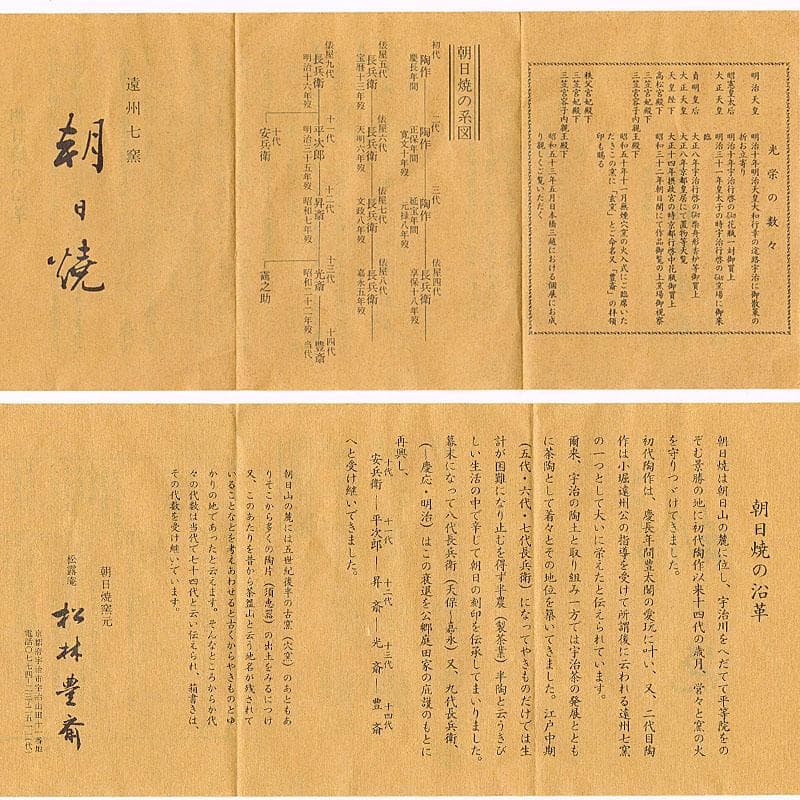 光栄の数々
明治天皇　明治十年明治天皇大和行幸の途路宇治に御散策の
折お立寄り
昭憲皇太后　明治十年宇治行啓の砌花瓶一封御買上
大正天皇　明治三十一年皇太子の時宇治行啓の砌窯場に御来
臨
貞明皇后　大正八年宇治行啓の砌柴舟形香炉等御買上
大正天皇　大正八年京都皇居にて置物等天覧
天皇陛下　大正十四年摂政宮の時京都行啓中花瓶御買上
高松宮殿下　昭和三十二年朝日閣にて作品御覧の上窯場御視察
三笠宮妃殿下
秩父宮妃殿下　昭和五十年十一月無煙穴窯の火入式にご臨席いた
三笠宮妃殿下　だきこの窯に「玄窯」とご命名又「豊斎」の拝領
三笠宮容子内親王殿下　印も賜る
三笠宮妃殿下　昭和五十三年五月日本橋三越における個展にお成
三笠宮容子内親王殿下　り親しくご覧いただく
朝日焼の系図
初代　陶作　慶長年間
二代　陶作　正保年間　寛文十年歿
三代　陶作　延宝年間　元禄八年歿
俵屋四代　長兵衛　享保十八年歿
俵屋五代　長兵衛　宝暦十三年歿
俵屋六代　長兵衛　天明六年歿
俵屋七代　長兵衛　文政八年歿
俵屋八代　長兵衛　嘉永五年歿
俵屋九代　長兵衛　明治十六年歿
十代　安兵衛
十一代　平次郎　明治三十五年歿
十二代　昇斎　昭和七年歿
十三代　光斎　昭和二十二年歿
十四代　豊斎　当代
靏之助
遠州七窯
朝日焼
朝日焼の沿革
朝日焼は朝日山の麓に位し、宇治川をへだてて平等院をの
ぞむ景勝の地に初代陶作以来十四代の歳月、営々と窯の火
を守りつゞけてきました。
初代陶作は、慶長年間豊太閤の愛玩に叶い、又、二代目陶
作は小堀遠州公の指導を受けて所謂後に云われる遠州七窯
の一つとして大いに栄えたと伝えられています。
爾来、宇治の陶土と取り組み一方では宇治茶の発展ととも
に茶陶として着々とその地位を築いてきました。江戸中期
（五代・六代・七代長兵衛）になってやきものだけでは生
計が困難になり止むを得ず半農（製茶業）半陶と云うきび
しい生活の中で辛じて朝日の刻印を伝承してまいりました。
幕末になって八代長兵衛（天保―嘉永）又、九代長兵衛、
（―慶応・明治）はこの衰退を公郷庭田家の庇護のもとに
再興し、
十代　十一代　十二代　十三代　十四代
安兵衛―平次郎―昇斎―光斎―豊斎
へと受け継いできました。
朝日山の麓には五世紀後半の古窯（穴窯）のあともあ
りそこから多くの陶片（須恵器）の出土をみるにつけ
又、このあたりを昔から茶盌山と云う地名が残されて
いることなどを考えあわせると古くからやきものとゆ
かりの地であったと云えます。そんなところからか代
々の代数は当代で七十四代と云い伝えられ、箱書きは、
その代数を受け継いでいます。
朝日焼窯元
松露庵　松林豊斎
京都府宇治市宇治山田十一番地
電話〇七七四－二三－二五一一（代）